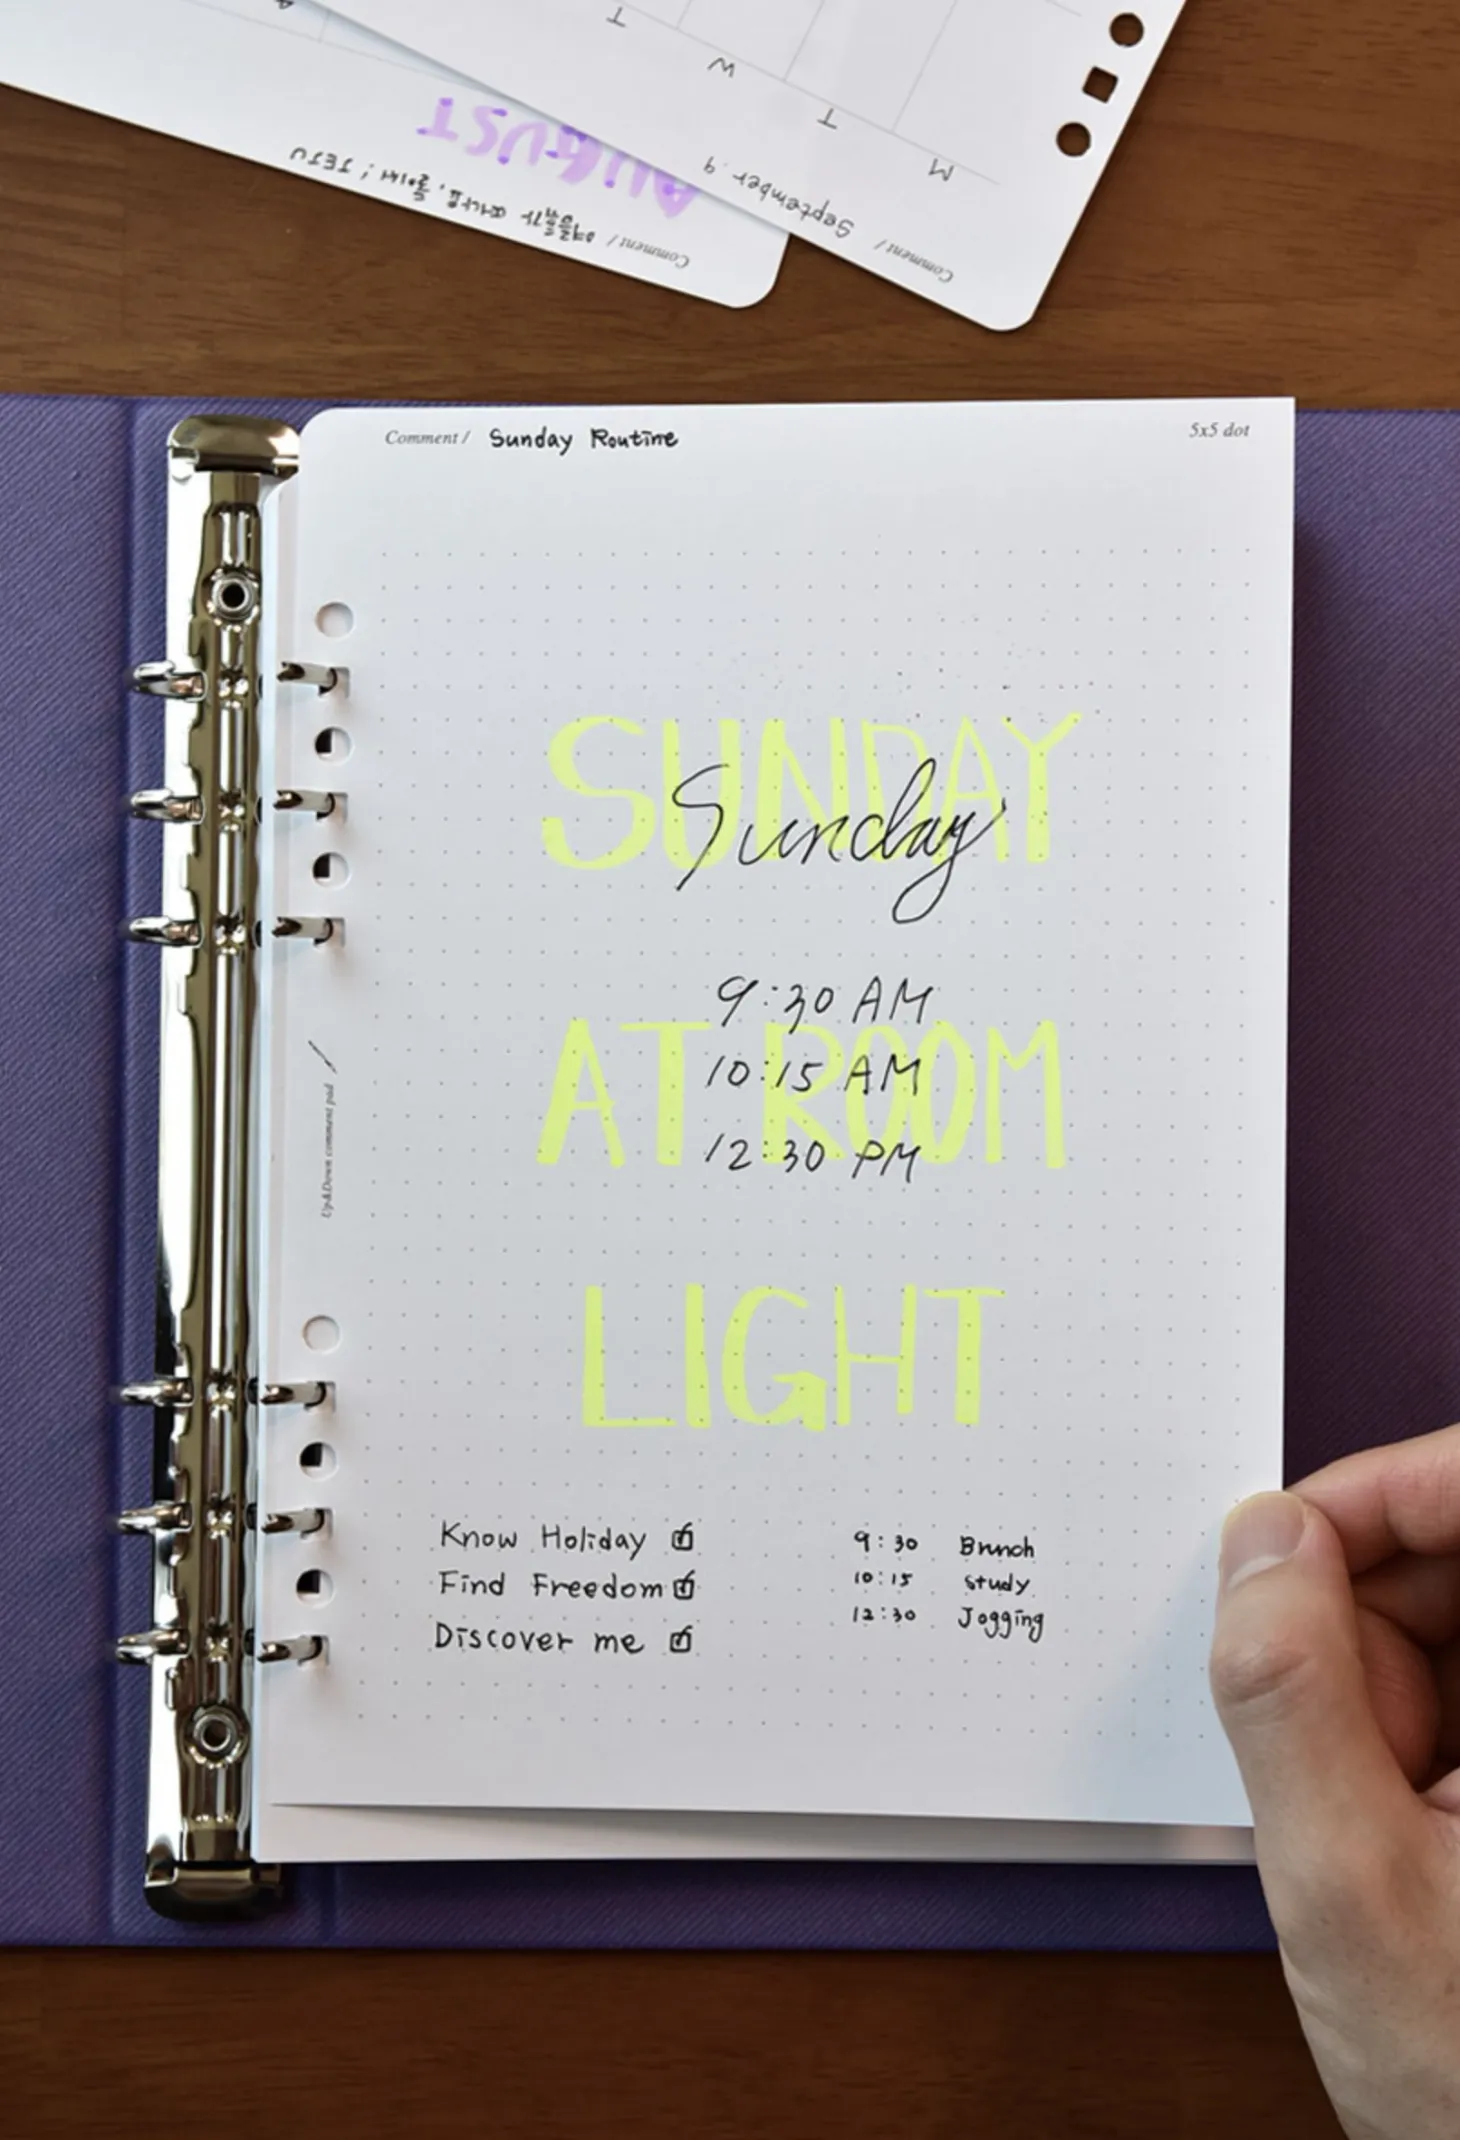 T
W
T
M
September . 9
Comment /
AUGUST
Comment / 여름휴가 JEJU
Comment / Sunday Routine
5x5 dot
SUNDAY
Sunday
9:30 AM
AT ROOM
10:15 AM
12:30 PM
Up&Down comment pad
LIGHT
Know Holiday ☑
Find Freedom ☑
Discover me ☑
9:30 Brunch
10:15 study
12:30 Jogging